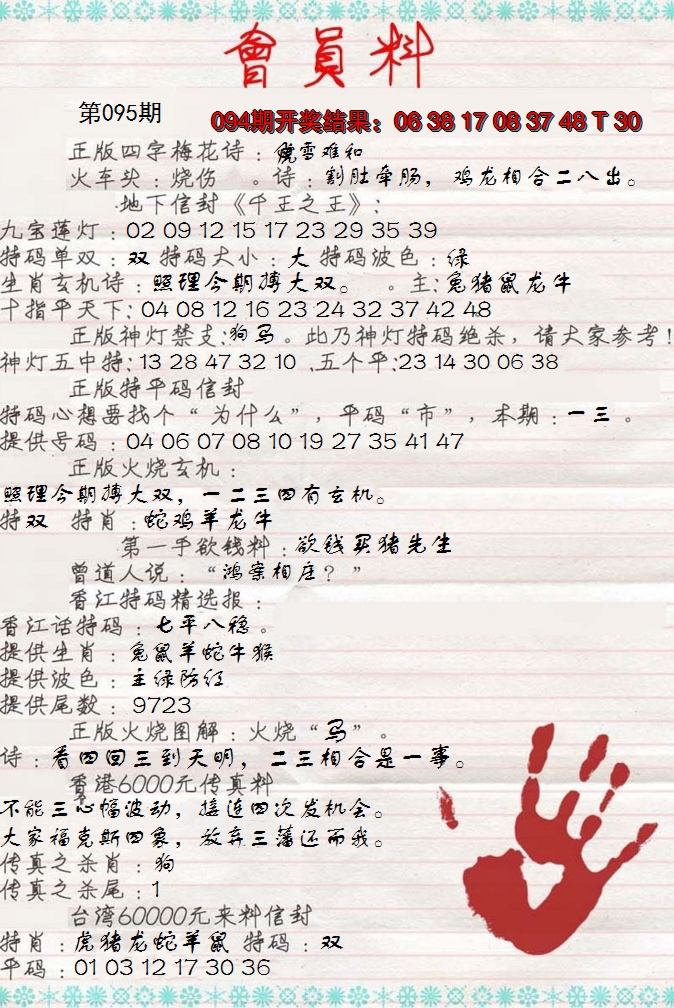 會員料
第095期
094期开奖结果：06 38 17 08 37 48 T 30
正版四字梅花诗：虎雪难和
火车头：烧伤 。诗：割肚牵肠，鸡龙相合二八出。
地下信封《千王之王》：
九宝莲灯：02 09 12 15 17 23 29 35 39
特码单双：双 特码大小：大 特码波色：绿
生肖玄机诗：照理今期搏大双。 。主：兔猪鼠龙牛
十指平天下：04 08 12 16 23 24 32 37 42 48
正版神灯禁支：狗马。此乃神灯特码绝杀，请大家参考！
神灯五中特：13 28 47 32 10 、五个平：23 14 30 06 38
正版特平码信封
特码心想要找个“为什么”，平码“市”，本期：一三 。
提供号码：04 06 07 08 10 19 27 35 41 47
正版火烧玄机：
照理今期搏大双，一二三四有玄机。
特双 特肖：蛇鸡羊龙牛
第一手欲钱料：欲钱买猪先生
曾道人说：“鸿案相庄？”
香江特码精选报：
香江话特码：七平八稳。
提供生肖：兔鼠羊蛇牛猴
提供波色：主绿防红
提供尾数：9723
正版火烧图解：火烧“马”。
诗：看四回三到天明，二三相合是一事。
香港6000元传真料
不能三心幅波动，接连四次发机会。
大家福克斯四象，放弃三藩还而我。
传真之杀肖：狗
传真之杀尾：1
台湾60000元来料信封
特肖：虎猪龙蛇羊鼠 特码：双
平码：01 03 12 17 30 36